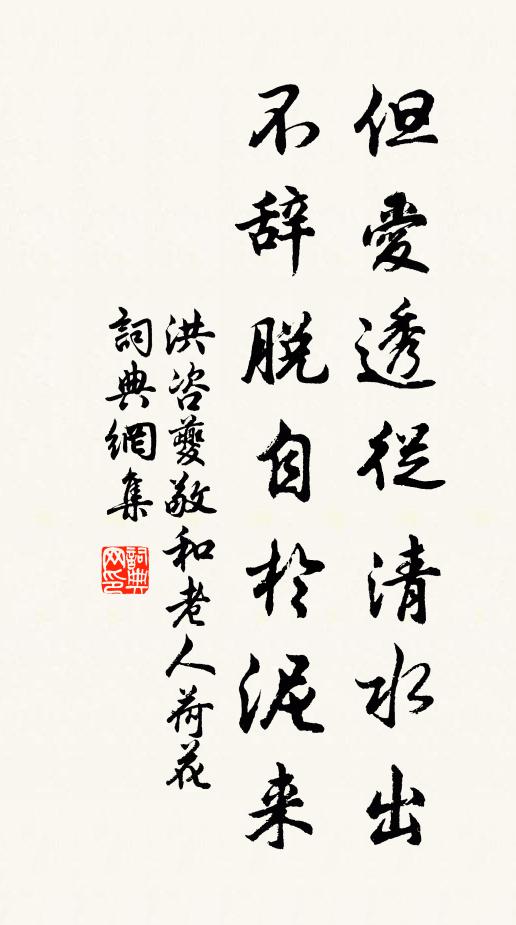 但愛透從清水出
不辞脫自於泥来
洪咨夔敬和老人荷花
詞典網集
詞典网印